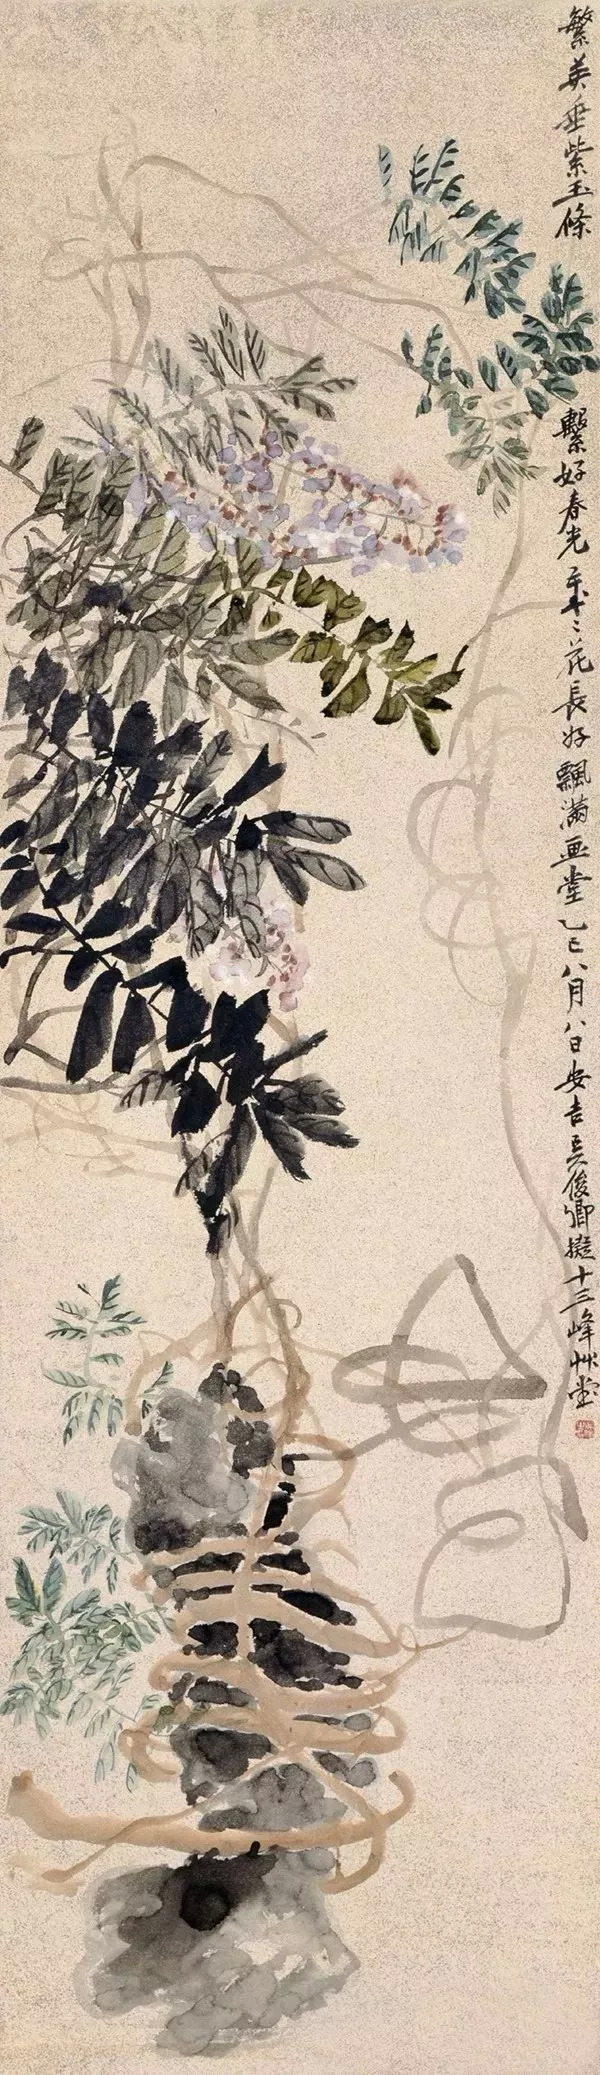 繁英垂紫玉條
繫好春光年々花長好飄滿画堂乙巳八月八日安吉吳俊卿擬十三峰艸堂